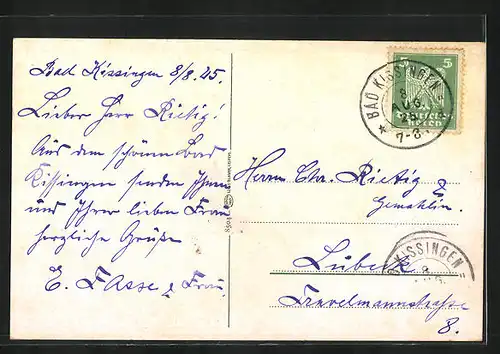 Bad Kissingen 8/8.25.
Lieber Herr Rietig!
Aus dem schönen Bad
Kissingen senden Ihnen
und Ihrer lieben Frau
herzliche Grüße
E. Fasse & Frau.
5 5
BAD KISSINGEN
8
AUG.
25
7-8.
Herrn Chr. Rietig &
Gemahlin.
Lübeck
Travelmannstraße
8.
KISSINGEN
8